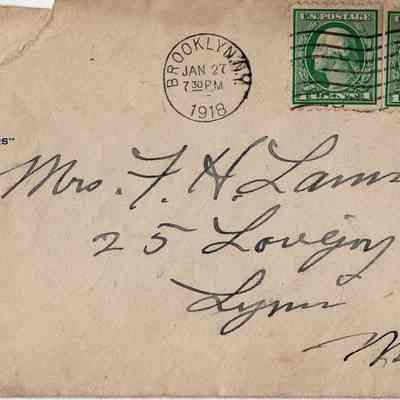 BROOKLYN, N.Y.
JAN 27
7 30 PM
1918
U.S. POSTAGE
s"
Mrs. F. H. Lam
25 Lovejoy
Lynn